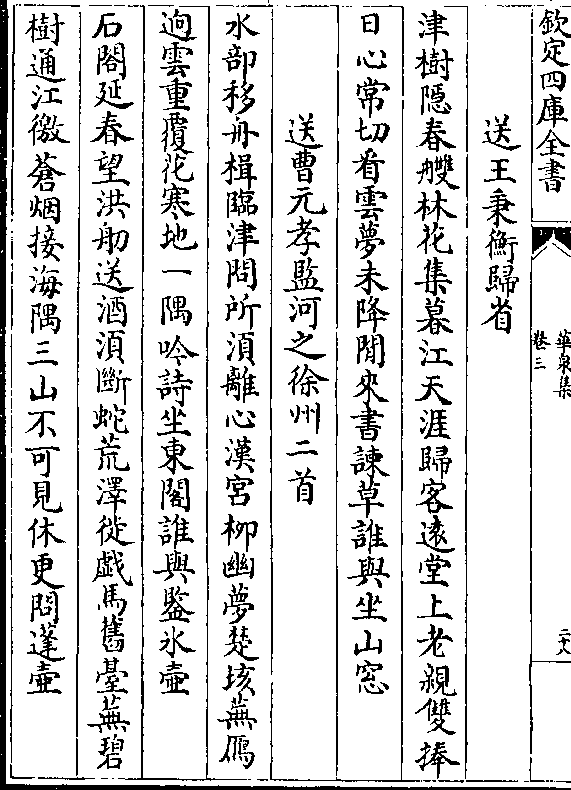 欽定四庫全書
華泉集
卷三
二十八
送王秉衡歸省
津樹隱春艭林花集暮江天涯歸客遠堂上老親雙捧
日心常切看雲夢未降閒來書諫草誰與坐山窓
送曹元孝監河之徐州二首
水部移舟楫臨津問所須離心漢宮柳幽夢楚垓蕪鴈
迥雲重覆花寒地一隅吟詩坐東閣誰與鑒氷壷
石閣延春望洪舠送酒須斷蛇荒澤徙戯馬舊臺蕪碧
樹通江徼蒼烟接海隅三山不可見休更問蓬壷